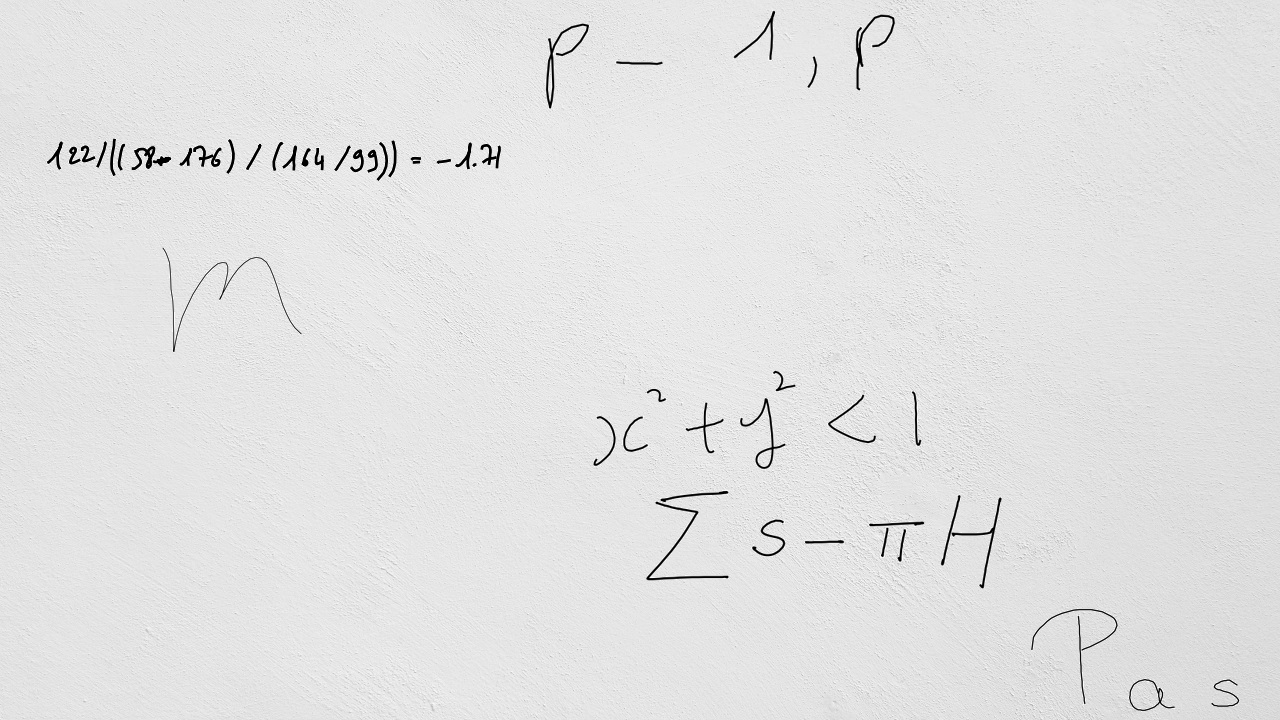 p - 1, p
122/((58-176) / (164/99)) = -1.71
m
x² + y² < 1
∑ s - π H
P a s